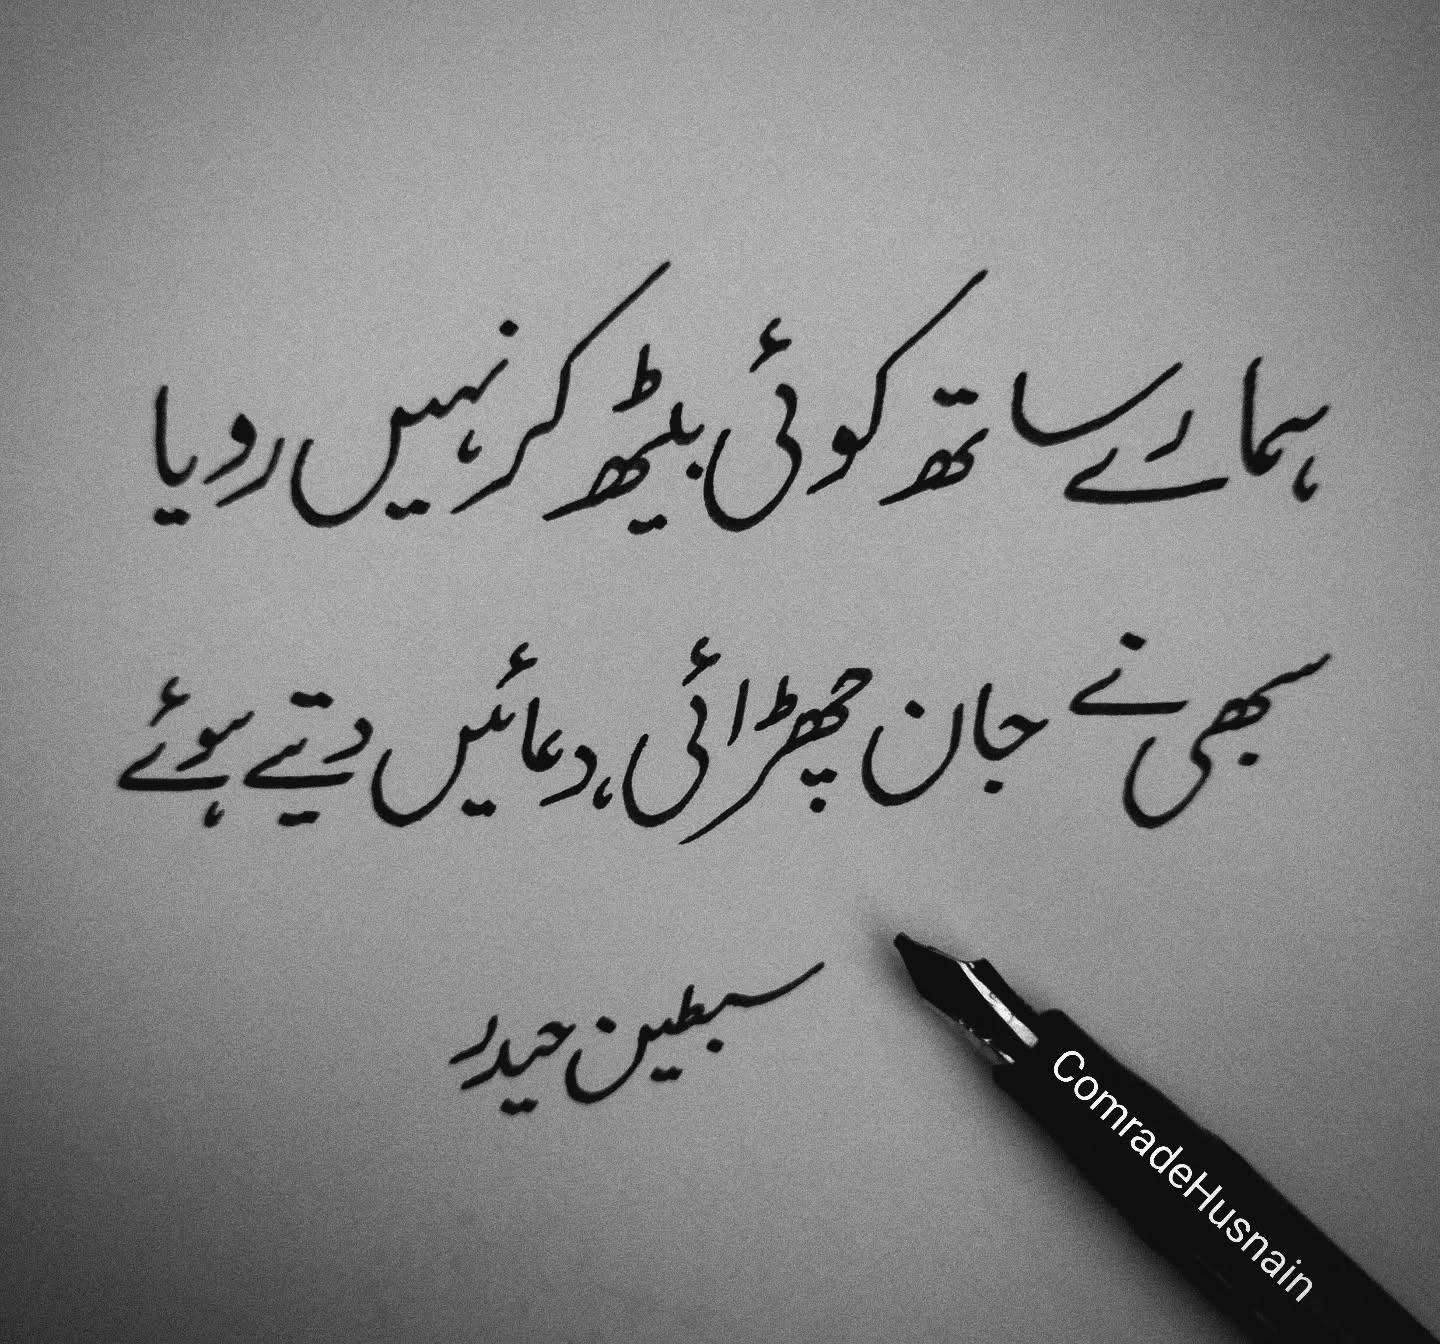 ہمارے ساتھ کوئی بیٹھ کر نہیں رویا
سبھی نے جان چھڑائی، دعائیں دیتے ہوئے
سبطین حیدر
ComradeHusnain